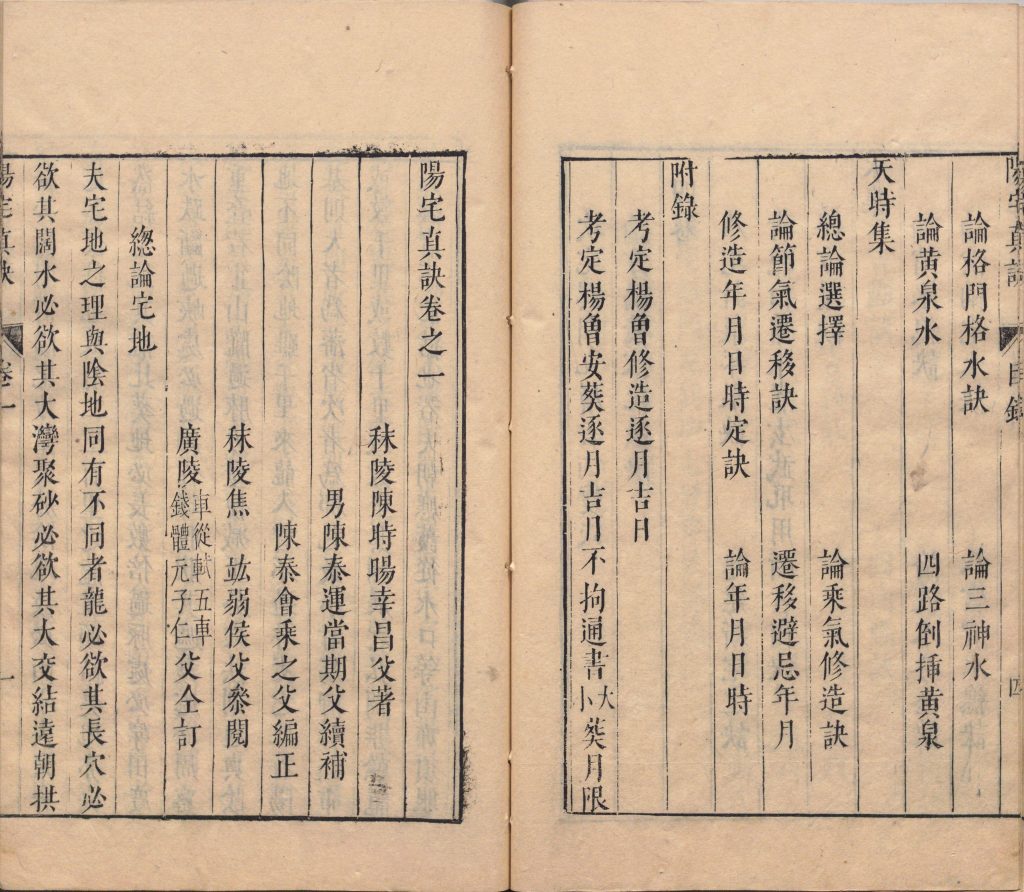 陽宅真訣 目錄 四
論格門格水訣 論三神水
論黃泉水 四路倒揷黃泉
天時集
總論選擇 論乘氣修造訣
論節氣遷移訣 遷移避忌年月
修造年月日時定訣 論年月日時
附錄
考定楊魯修造逐月吉日
考定楊魯安葬逐月吉日不拘通書大小葬月限
陽宅真訣卷之一
秣陵陳時暘幸昌父著
男陳泰運當期父續補
陳泰會乘之父編正
秣陵焦竑弱侯父叅閱
廣陵車從軾五車錢體元子仁父仝訂
緫論宅地
夫宅地之理與陰地同有不同者龍必欲其長穴必
欲其闊水必欲其大灣聚砂必欲其大交結遠朝拱
陽宅真訣 卷一 一